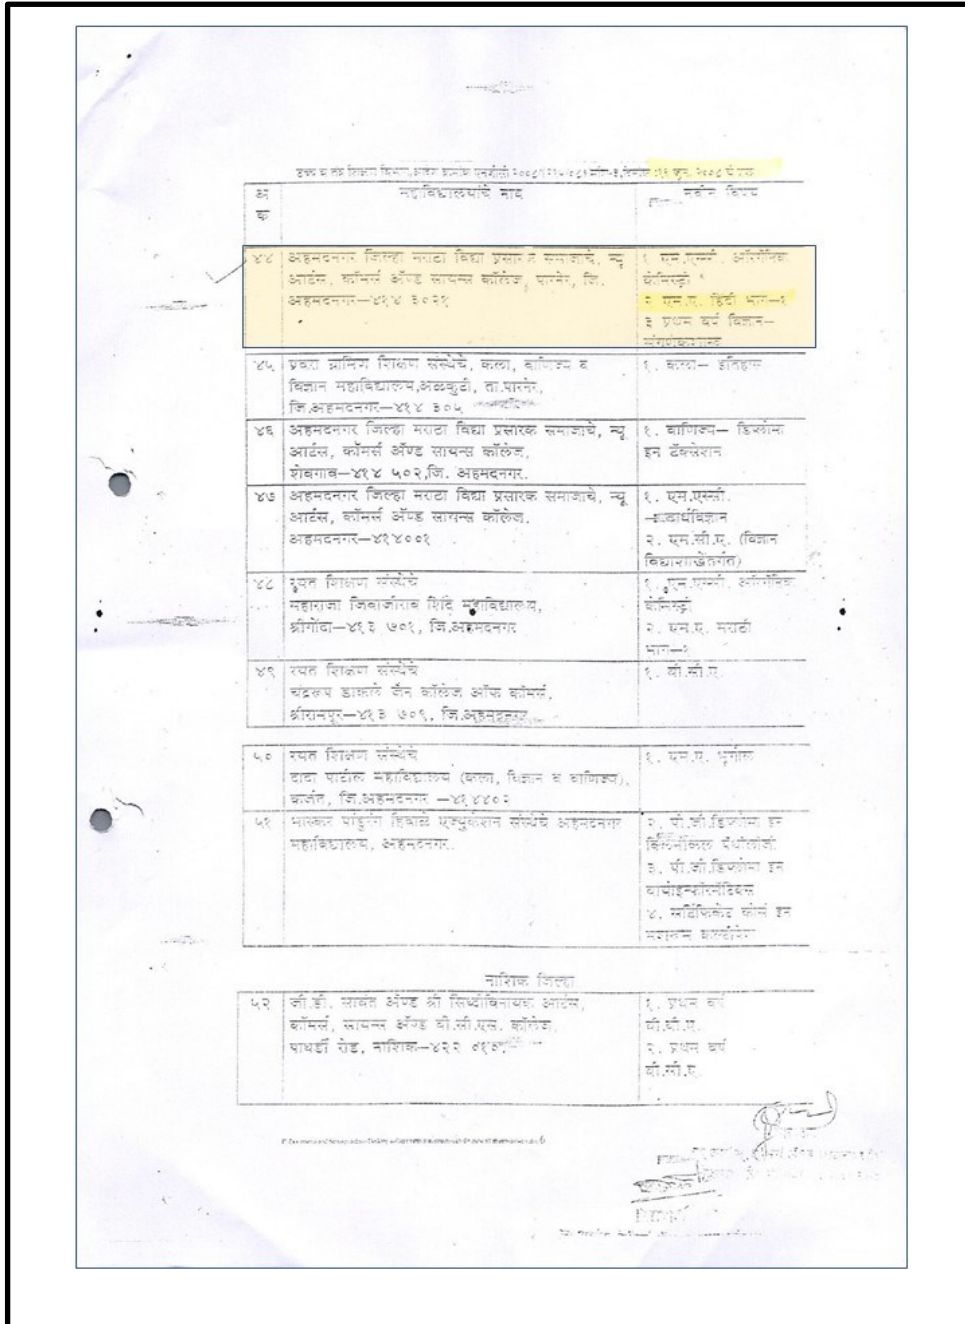 उच्च व तंत्र शिक्षण विभाग
अ
क
महाविद्यालयांचे नाव
नवीन विषय
४४
अहमदनगर जिल्हा मराठा विद्या प्रसारक समाजाचे, न्यू
आर्टस, कॉमर्स ॲण्ड सायन्स कॉलेज, पारनेर, जि.
अहमदनगर—४१४ ३०२१
१. एम.एस्सी. ऑरगॅनिक
केमिस्ट्री
२ एम.ए. हिंदी भाग—१
३ प्रथम वर्ष विज्ञान—
संगणकशास्त्र
४५
प्रवरा ग्रामिण शिक्षण संस्थेचे, कला, वाणिज्य व
विज्ञान महाविद्यालय,अळकुटी, ता.पारनेर,
जि.अहमदनगर—४१४ ३०५
१. कला— इतिहास
४६
अहमदनगर जिल्हा मराठा विद्या प्रसारक समाजाचे, न्यू
आर्टस, कॉमर्स ॲण्ड सायन्स कॉलेज,
शेवगाव—४१४ ५०२,जि. अहमदनगर.
१. वाणिज्य— डिप्लोमा
इन टॅक्सेशन
४७
अहमदनगर जिल्हा मराठा विद्या प्रसारक समाजाचे, न्यू
आर्टस, कॉमर्स ॲण्ड सायन्स कॉलेज.
अहमदनगर—४१४००१
१. एम.एस्सी.
—पदार्थविज्ञान
२. एम.सी.ए. (विज्ञान
विद्याशाखेंतर्गत)
४८
रयत शिक्षण संस्थेचे
महाराजा जिवाजीराव शिंदे महाविद्यालय,
श्रीगोंदा—४१३ ७०१, जि.अहमदनगर
१. एम.एस्सी. ऑरगॅनिक
केमिस्ट्री
२. एम.ए. मराठी
भाग—१
४९
रयत शिक्षण संस्थेचे
चंद्ररूप डाकले जैन कॉलेज ऑफ कॉमर्स,
श्रीरामपूर—४१३ ७०९, जि.अहमदनगर
१. बी.सी.ए.
५०
रयत शिक्षण संस्थेचे
दादा पाटील महाविद्यालय (कला, विज्ञान व वाणिज्य),
कर्जत, जि.अहमदनगर —४१४४०२
१. एम.ए. भूगोल
५१
भास्कर पांडुरंग हिवाळे एज्युकेशन संस्थेचे अहमदनगर
महाविद्यालय, अहमदनगर.
२. पी.जी.डिप्लोमा इन
क्लिनीकल पॅथॉलॉजी
३. पी.जी.डिप्लोमा इन
बायोइन्फॉरमॅटिक्स
४. सर्टिफिकेट कोर्स इन
मशरूम कल्टीवेशन
नाशिक जिल्हा
५२
जी.डी. सावंत ॲण्ड श्री सिध्दीविनायक आर्टस,
कॉमर्स, सायन्स ॲण्ड बी.सी.एस. कॉलेज,
पाथर्डी रोड, नाशिक—४२२ ०१०.
१. प्रथम वर्ष
बी.बी.ए.
२. प्रथम वर्ष
बी.सी.ए.